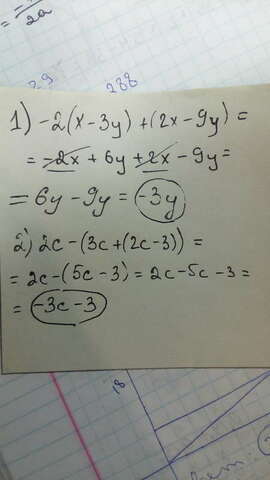 2a
288
1) -2(x-3y)+(2x-9y)=
=-2x+6y+2x-9y=
=6y-9y=-3y
2) 2c-(3c+(2c-3))=
=2c-(5c-3)=2c-5c-3=
=-3c-3
18